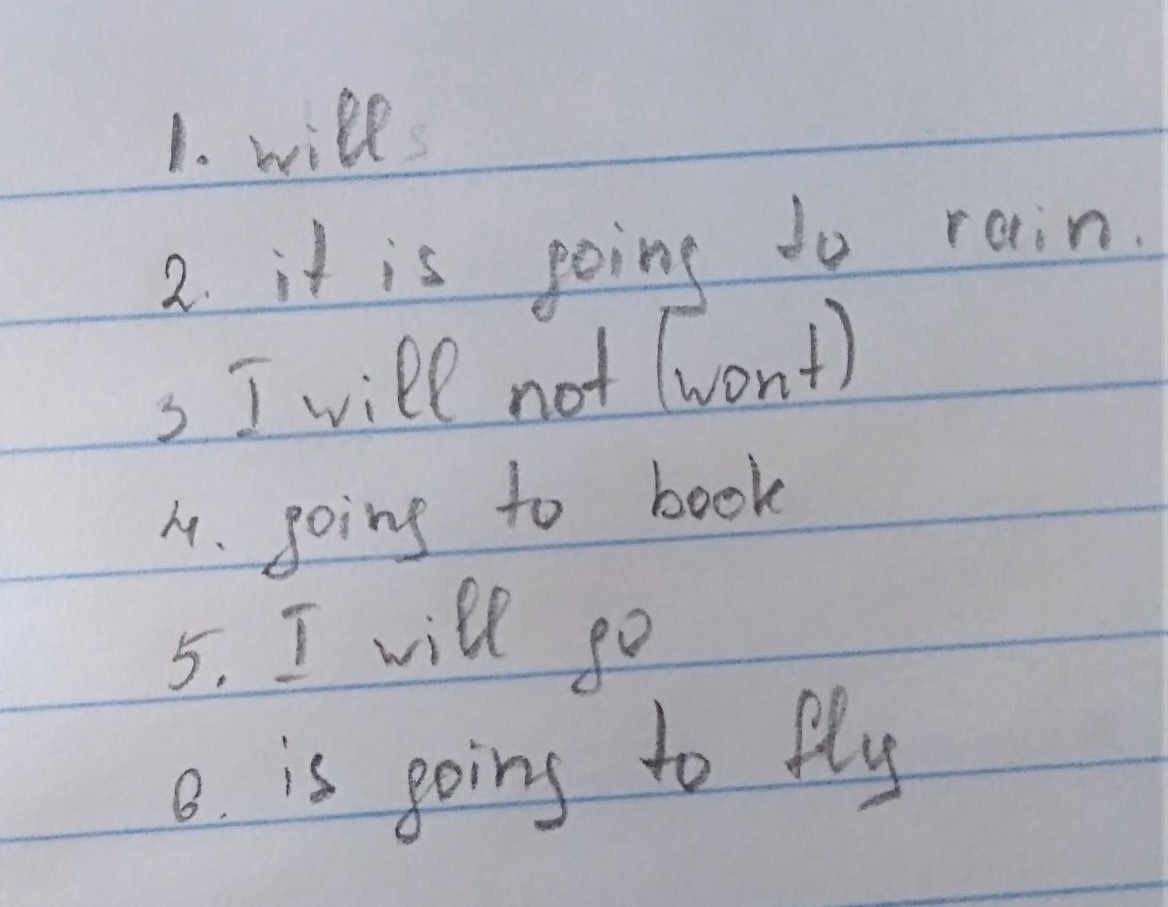 1. will
2. it is going to rain.
3 I will not (wont)
4. going to book
5. I will go
6. is going to fly